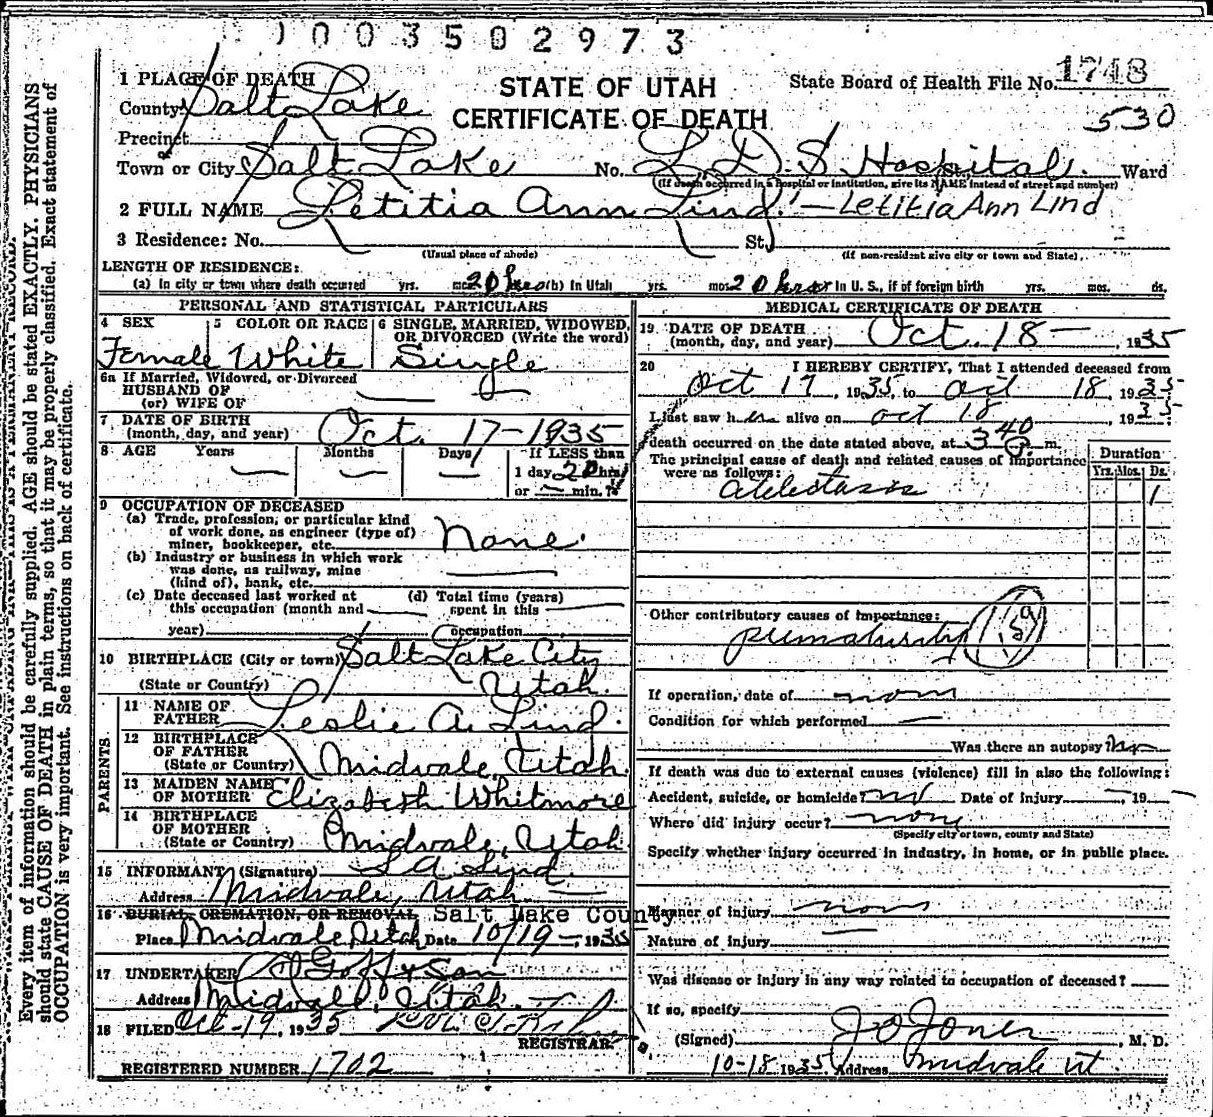 1003502973
1 PLACE OF DEATH
STATE OF UTAH
State Board of Health File No. 1748
County Salt Lake
CERTIFICATE OF DEATH
530
Precinct
Town or City Salt Lake No. L. D. S Hospital. Ward
(If death occurred in a hospital or institution, give its NAME instead of street and number)
2 FULL NAME Letitia Ann Lind. - Letitia Ann Lind
3 Residence: No. St.
(Usual place of abode) (If non-resident give city or town and State)
LENGTH OF RESIDENCE:
(a) In city or town where death occurred yrs. mos. 20 hrs (b) In Utah yrs. mos. 20 hrs In U. S., if of foreign birth yrs. mos. ds.
PERSONAL AND STATISTICAL PARTICULARS
4 SEX 5 COLOR OR RACE 6 SINGLE, MARRIED, WIDOWED, OR DIVORCED (Write the word)
Female White Single
6a If Married, Widowed, or Divorced
HUSBAND OF
(or) WIFE OF
7 DATE OF BIRTH
(month, day, and year) Oct. 17-1935
8 AGE Years Months Days If LESS than
1 day 20 hrs.
or min.?
9 OCCUPATION OF DECEASED
(a) Trade, profession, or particular kind
of work done, as engineer (type of)
miner, bookkeeper, etc. None.
(b) Industry or business in which work
was done, as railway, mine
(kind of), bank, etc.
(c) Date deceased last worked at (d) Total time (years)
this occupation (month and spent in this
year) occupation
10 BIRTHPLACE (City or town) Salt Lake City
(State or Country) Utah.
PARENTS
11 NAME OF
FATHER Leslie A. Lind.
12 BIRTHPLACE
OF FATHER
(State or Country) Midvale, Utah.
13 MAIDEN NAME
OF MOTHER Elizabeth Whitmore
14 BIRTHPLACE
OF MOTHER
(State or Country) Midvale, Utah
15 INFORMANT (Signature) L A Lind.
Address Midvale, Utah.
16 BURIAL, CREMATION, OR REMOVAL Salt Lake County
Place Midvale Utah Date 10/19-, 1935
17 UNDERTAKER Goff & Son
Address Midvale, Utah.
18 FILED Oct-19, 1935
REGISTRAR
REGISTERED NUMBER 1702
MEDICAL CERTIFICATE OF DEATH
19 DATE OF DEATH
(month, day, and year) Oct. 18-, 1935
20 I HEREBY CERTIFY, That I attended deceased from
Oct 17, 1935, to Oct 18, 1935
I last saw her alive on Oct 18, 1935
death occurred on the date stated above, at 3 40 P. m.
The principal cause of death and related causes of importance
were as follows:
Duration
Yrs. Mos. Ds.
atelectasis 1
Other contributory causes of importance:
prematurity 159
If operation, date of none
Condition for which performed
Was there an autopsy? No
If death was due to external causes (violence) fill in also the following:
Accident, suicide, or homicide? no Date of injury , 19
Where did injury occur? none
(Specify city or town, county and State)
Specify whether injury occurred in industry, in home, or in public place.
Manner of injury none
Nature of injury
Was disease or injury in any way related to occupation of deceased?
If so, specify
(Signed) J O Jones, M. D.
10-18 1935 Address Midvale Ut.
Every item of information should be carefully supplied. AGE should be stated EXACTLY. PHYSICIANS
should state CAUSE OF DEATH in plain terms, so that it may be properly classified. Exact statement of
OCCUPATION is very important. See instructions on back of certificate.